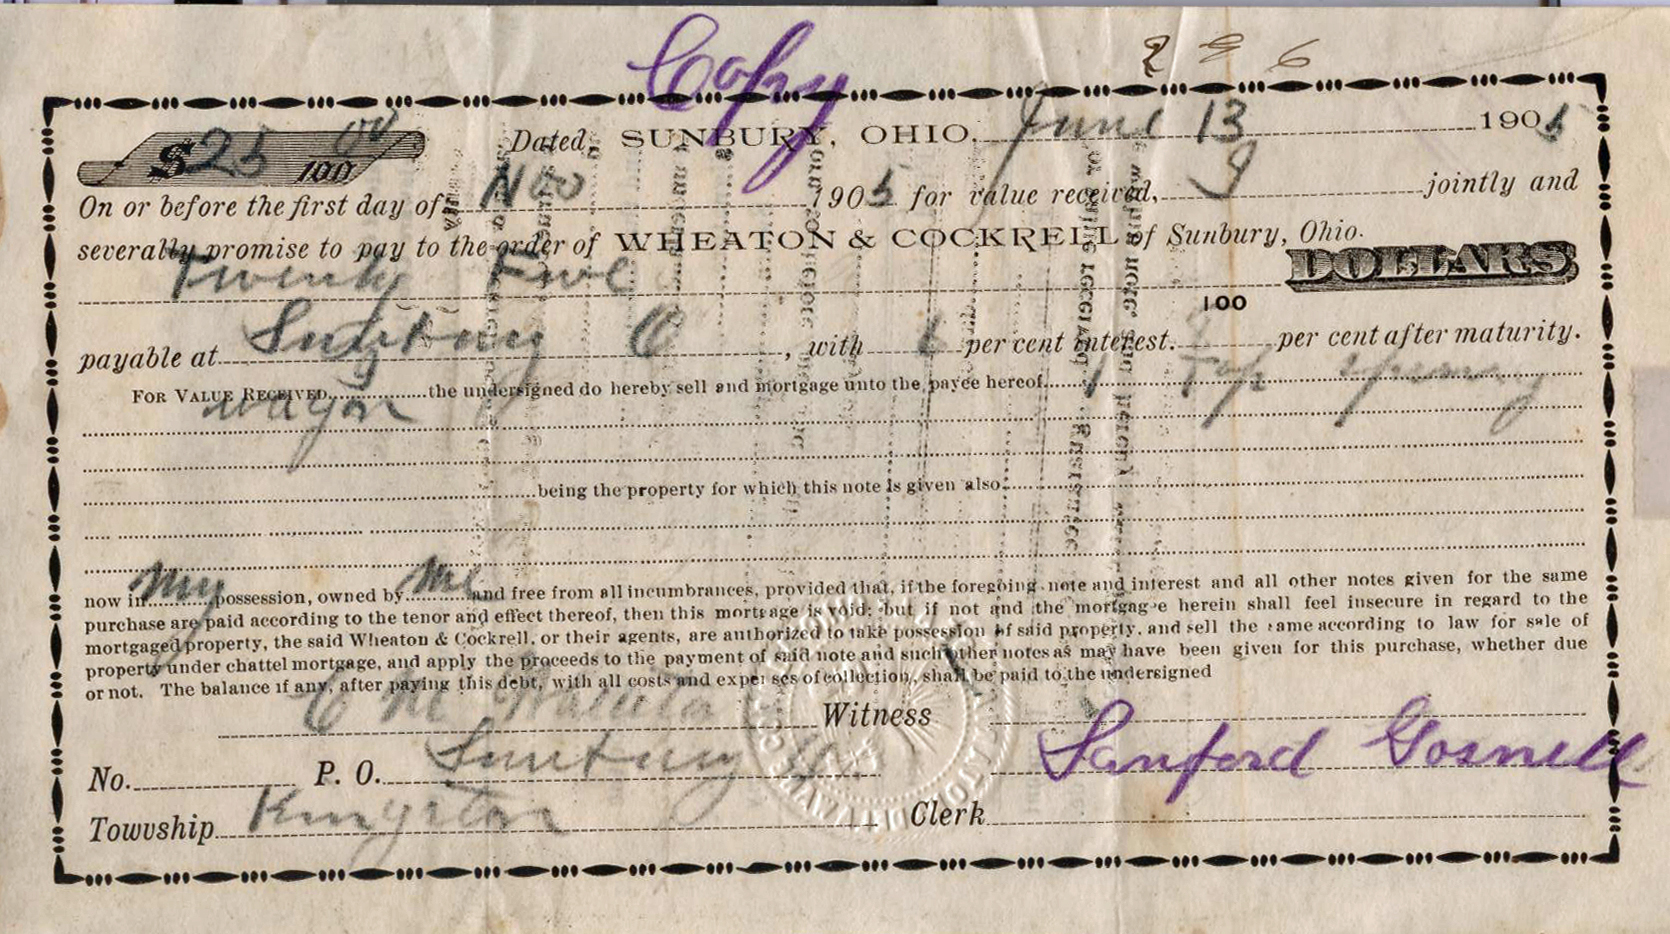 Copy
296
$25 00/100 Dated, SUNBURY, OHIO, June 13 1905
On or before the first day of Nov 1905 for value received, I jointly and
severally promise to pay to the order of WHEATON & COCKRELL of Sunbury, Ohio.
Twenty Five 100 DOLLARS
payable at Sunbury O, with 6 per cent interest. per cent after maturity.
FOR VALUE RECEIVED the undersigned do hereby sell and mortgage unto the payee hereof 1 Top Spring
wagon
being the property for which this note is given also
now in my possession, owned by me and free from all incumbrances, provided that, if the foregoing note and interest and all other notes given for the same
purchase are paid according to the tenor and effect thereof, then this mortgage is void; but if not and the mortgagee herein shall feel insecure in regard to the
mortgaged property, the said Wheaton & Cockrell, or their agents, are authorized to take possession of said property, and sell the same according to law for sale of
property under chattel mortgage, and apply the proceeds to the payment of said note and such other notes as may have been given for this purchase, whether due
or not. The balance if any, after paying this debt, with all costs and expenses of collection, shall be paid to the undersigned
C M Witness
No. P. O. Sunbury Sanford Gosnell
Towvship Kingston Clerk